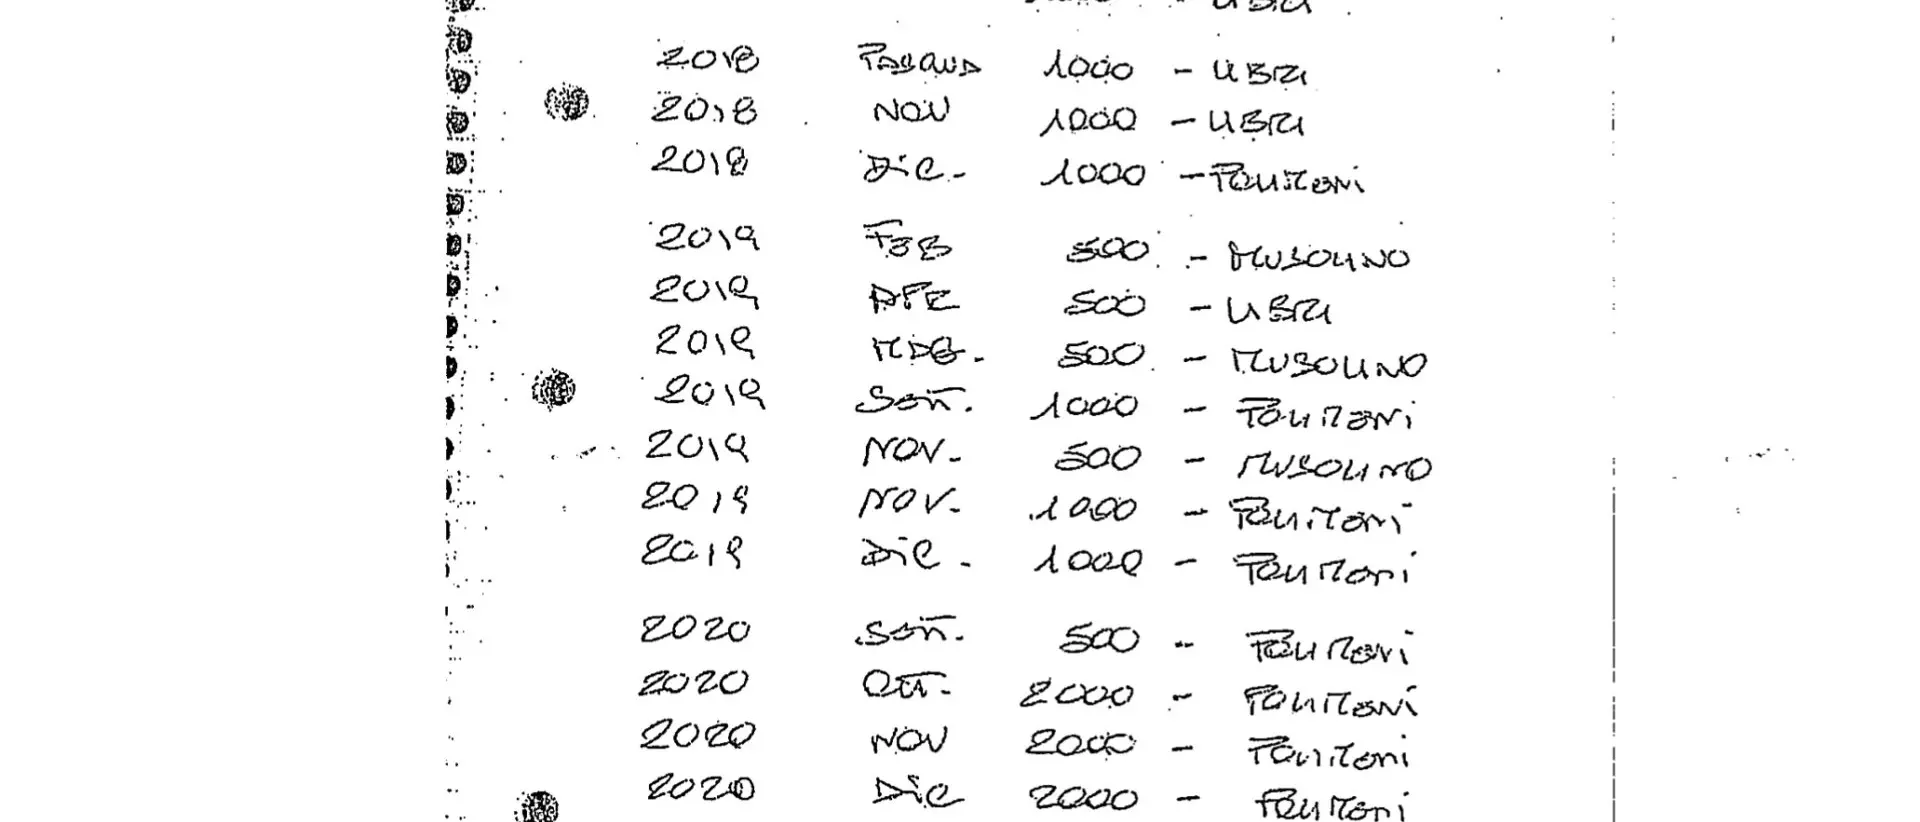 - LIBRI
2018 PASQUA 1000 - LIBRI
2018 NOV 1000 - LIBRI
2018 Dic. 1000 - POLIMENi
2019 FEB 500 - MUSOLINO
2019 APR 500 - LIBRI
2019 MAG. 500 - MUSOLINO
2019 SETT. 1000 - POLIMENi
2019 NOV. 500 - MUSOLINO
2019 NOV. 1000 - POLIMENi
2019 Dic. 1000 - POLIMENi
2020 SETT. 500 - POLIMENi
2020 OTT. 2000 - POLIMENi
2020 NOV 2000 - POLIMENi
2020 Dic 2000 - POLIMENi